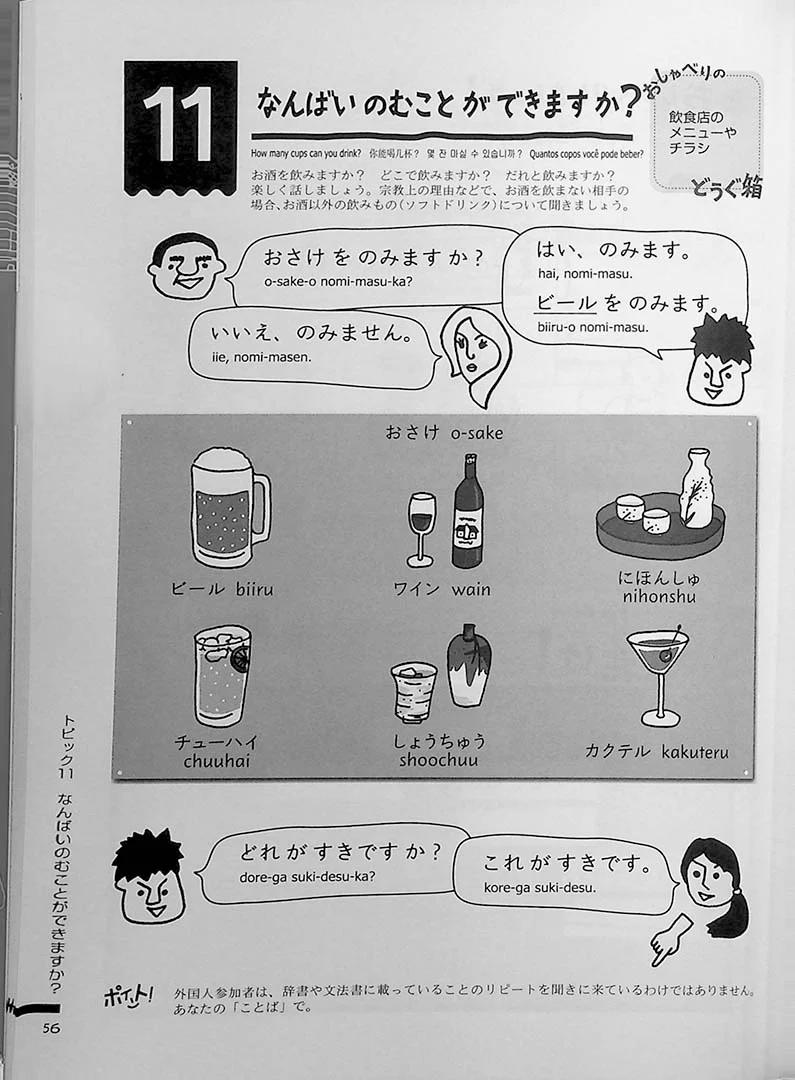 11
なんばい のむこと が できます か?
おしゃべりの
飲食店の
メニューや
チラシ
どうぐ箱
How many cups can you drink? 你能喝几杯? 몇 잔 마실 수 있습니까? Quantos copos você pode beber?
お酒を飲みますか? どこで飲みますか? だれと飲みますか?
楽しく話しましょう。宗教上の理由などで、お酒を飲まない相手の
場合、お酒以外の飲みもの(ソフトドリンク)について聞きましょう。
おさけ を のみます か?
o-sake-o nomi-masu-ka?
はい、のみます。
hai, nomi-masu.
ビール を のみます。
biiru-o nomi-masu.
いいえ、のみません。
iie, nomi-masen.
おさけ o-sake
ビール biiru
ワイン wain
にほんしゅ
nihonshu
チューハイ
chuuhai
しょうちゅう
shoochuu
カクテル kakuteru
どれ が すきです か?
dore-ga suki-desu-ka?
これ が すきです。
kore-ga suki-desu.
ポイント!
外国人参加者は、辞書や文法書に載っていることのリピートを聞きに来ているわけではありません。
あなたの「ことば」で。
トピック11 なんばいのむことができますか?
56